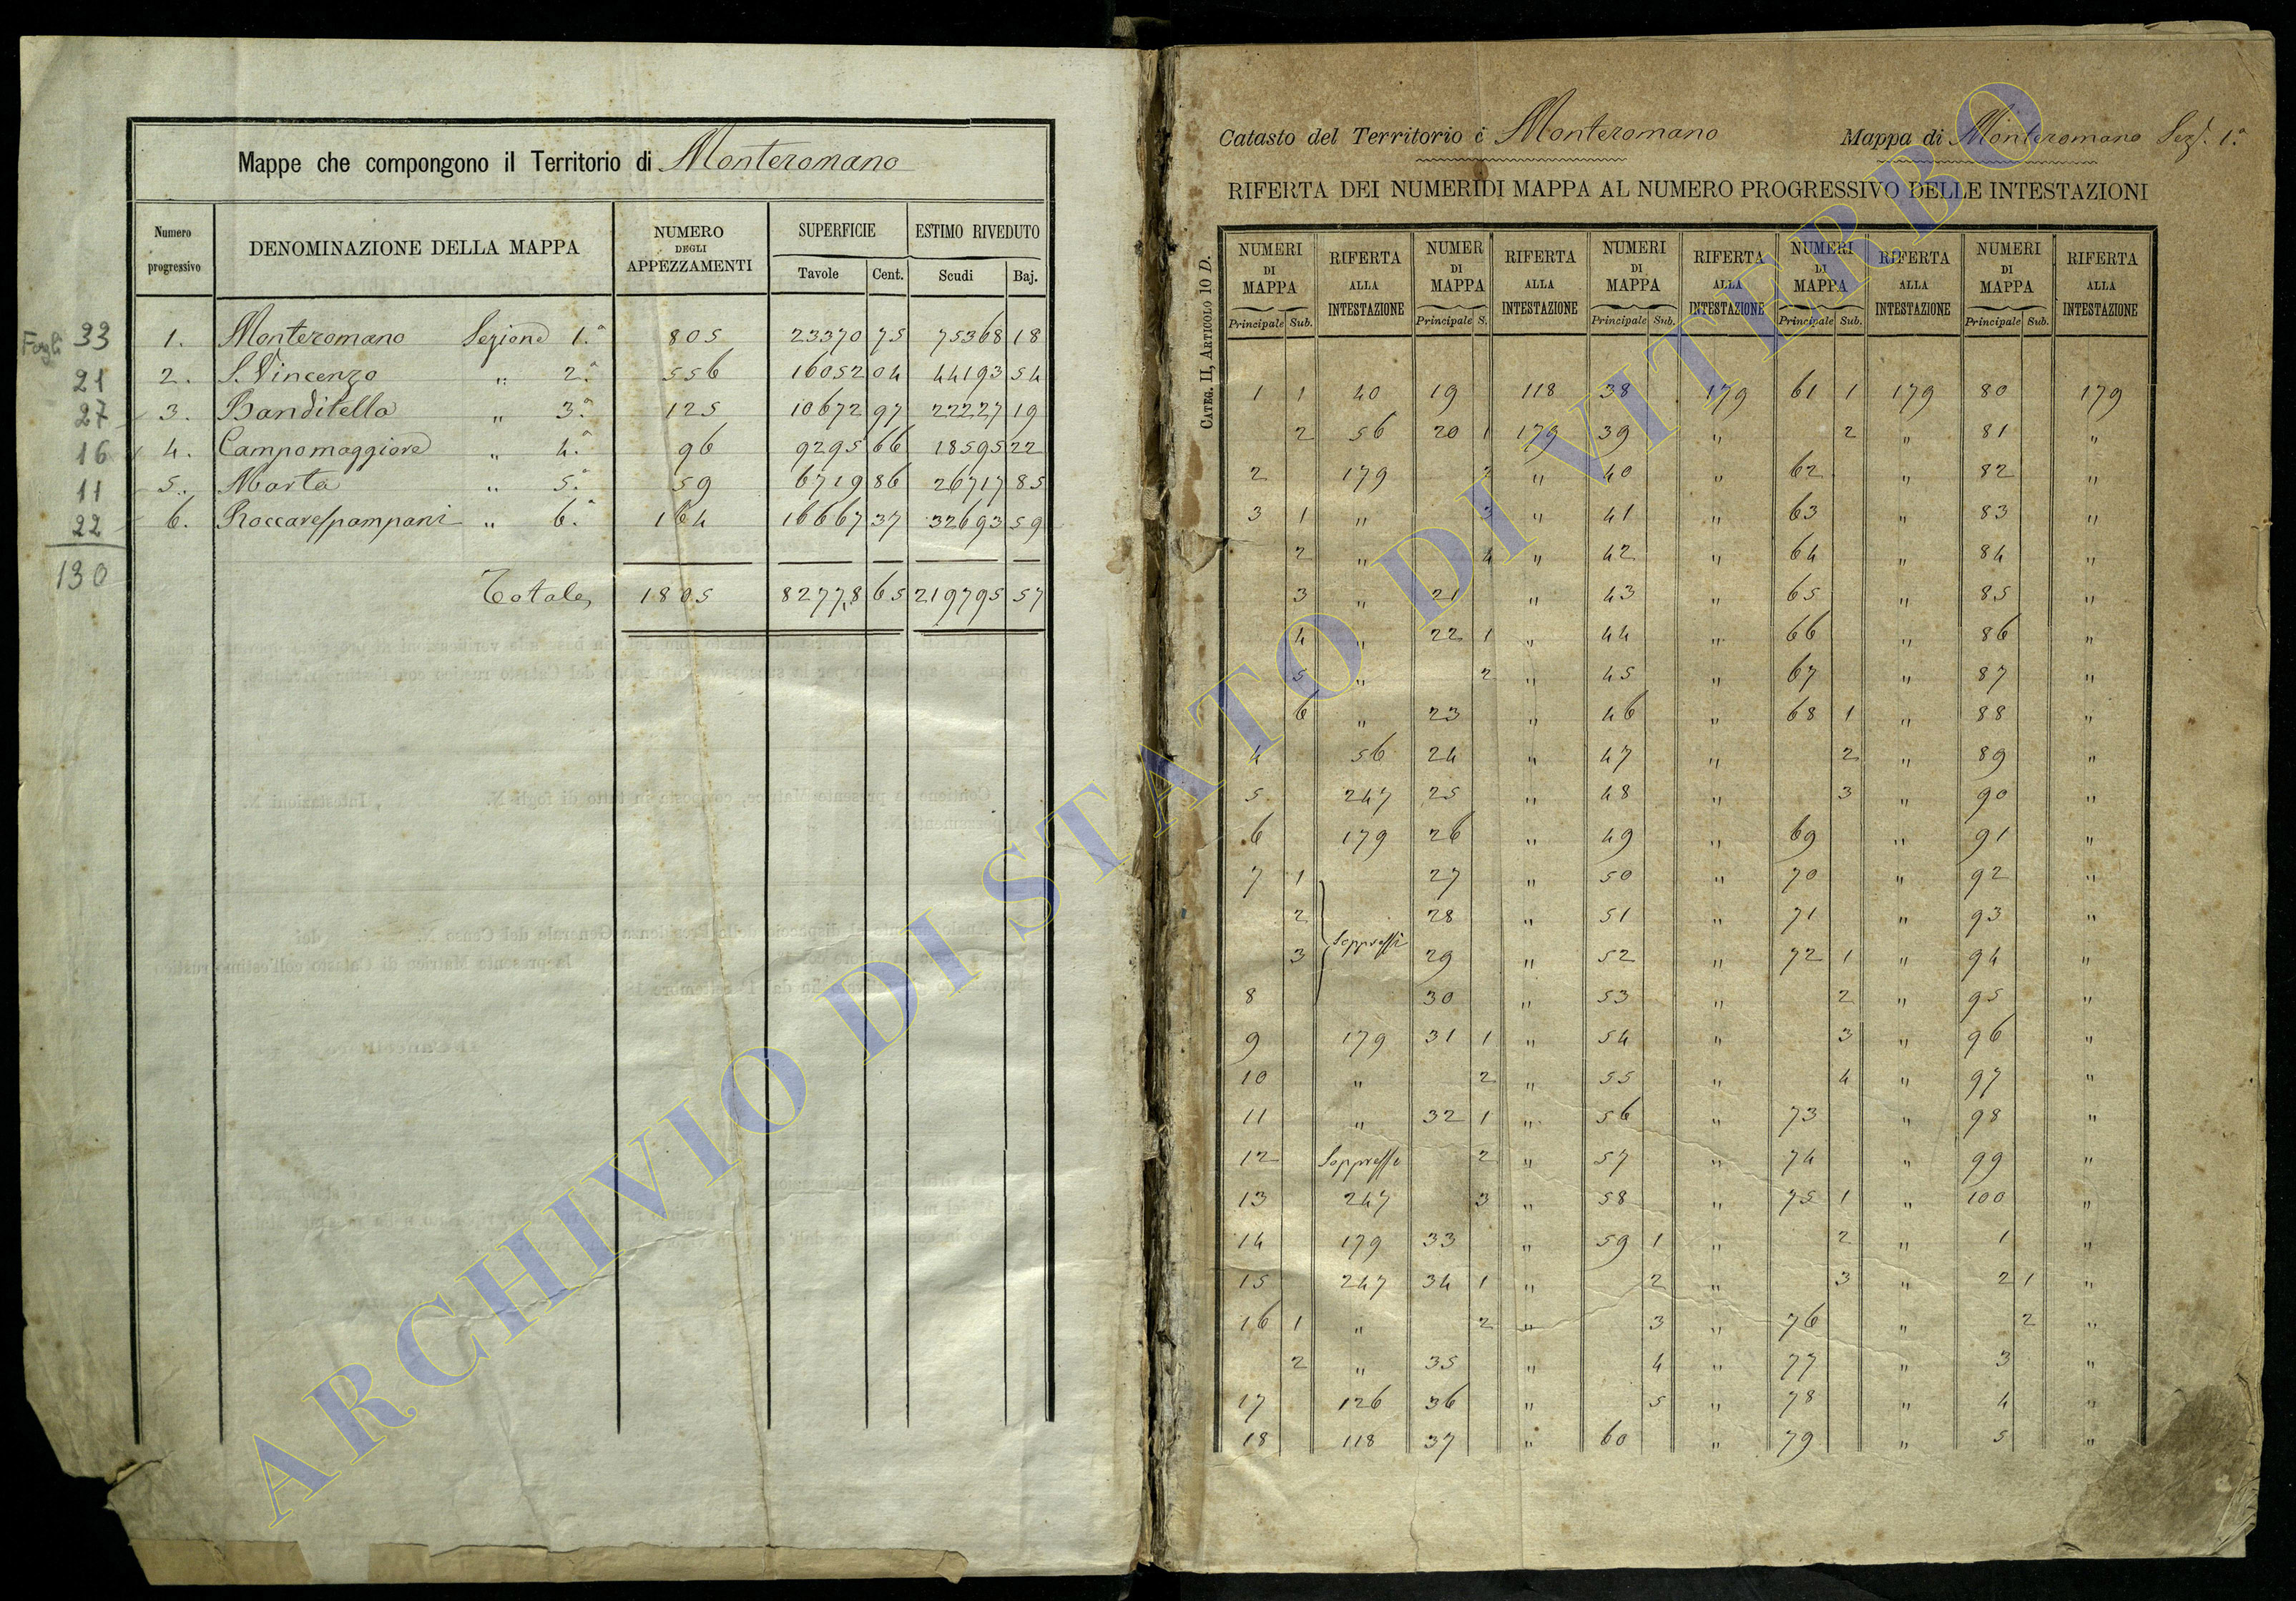 Mappe che compongono il Territorio di Monteromano
Numero progressivo | DENOMINAZIONE DELLA MAPPA | NUMERO DEGLI APPEZZAMENTI | SUPERFICIE | ESTIMO RIVEDUTO
Tavole | Cent. | Scudi | Baj.
Fogli 33 | 1. | Monteromano Sezione 1.a | 805 | 23370 | 75 | 75368 | 18
21 | 2. | S. Vincenzo " 2.a | 556 | 16052 | 04 | 44193 | 54
27 | 3. | Banditella " 3.a | 125 | 10672 | 97 | 22227 | 19
16 | 4. | Campomaggiore " 4.a | 96 | 9295 | 66 | 18595 | 22
11 | 5. | Marta " 5.a | 59 | 6719 | 86 | 26717 | 85
22 | 6. | Roccarespampani " 6.a | 164 | 16667 | 37 | 32693 | 59
130
Totale | 1805 | 82778 | 65 | 219795 | 57
Catasto del Territorio di Monteromano
Mappa di Monteromano Sez. 1.a
RIFERTA DEI NUMERI DI MAPPA AL NUMERO PROGRESSIVO DELLE INTESTAZIONI
CATEG. II, ARTICOLO 10 D.
NUMERI DI MAPPA | RIFERTA ALLA INTESTAZIONE | NUMER DI MAPPA | RIFERTA ALLA INTESTAZIONE | NUMERI DI MAPPA | RIFERTA ALLA INTESTAZIONE | NUMERI DI MAPPA | RIFERTA ALLA INTESTAZIONE | NUMERI DI MAPPA | RIFERTA ALLA INTESTAZIONE
Principale | Sub. | Principale | S. | Principale | Sub. | Principale | Sub. | Principale | Sub.
1 | 1 | 40 | 19 | | 118 | 38 | | 179 | 61 | 1 | 179 | 80 | | 179
| 2 | 56 | 20 | 1 | 179 | 39 | | " | | 2 | " | 81 | | "
2 | | 179 | | 2 | " | 40 | | " | 62 | | " | 82 | | "
3 | 1 | " | | 3 | " | 41 | | " | 63 | | " | 83 | | "
| 2 | " | | 4 | " | 42 | | " | 64 | | " | 84 | | "
| 3 | " | 21 | | " | 43 | | " | 65 | | " | 85 | | "
| 4 | " | 22 | 1 | " | 44 | | " | 66 | | " | 86 | | "
| 5 | " | | 2 | " | 45 | | " | 67 | | " | 87 | | "
| 6 | " | 23 | | " | 46 | | " | 68 | 1 | " | 88 | | "
4 | | 56 | 24 | | " | 47 | | " | | 2 | " | 89 | | "
5 | | 247 | 25 | | " | 48 | | " | | 3 | " | 90 | | "
6 | | 179 | 26 | | " | 49 | | " | 69 | | " | 91 | | "
7 | 1 | | 27 | | " | 50 | | " | 70 | | " | 92 | | "
| 2 | | 28 | | " | 51 | | " | 71 | | " | 93 | | "
| 3 | Soppressi | 29 | | " | 52 | | " | 72 | 1 | " | 94 | | "
8 | | | 30 | | " | 53 | | " | | 2 | " | 95 | | "
9 | | 179 | 31 | 1 | " | 54 | | " | | 3 | " | 96 | | "
10 | | " | | 2 | " | 55 | | " | | 4 | " | 97 | | "
11 | | " | 32 | 1 | " | 56 | | " | 73 | | " | 98 | | "
12 | | Soppresso | | 2 | " | 57 | | " | 74 | | " | 99 | | "
13 | | 247 | | 3 | " | 58 | | " | 75 | 1 | " | 100 | | "
14 | | 179 | 33 | | " | 59 | 1 | " | | 2 | " | 1 | | "
15 | | 247 | 34 | 1 | " | | 2 | " | | 3 | " | 2 | 1 | "
16 | 1 | " | | 2 | " | | 3 | " | 76 | | " | | 2 | "
| 2 | " | 35 | | " | | 4 | " | 77 | | " | 3 | | "
17 | | 126 | 36 | | " | | 5 | " | 78 | | " | 4 | | "
18 | | 118 | 37 | | " | 60 | | " | 79 | | " | 5 | | "
ARCHIVIO DI STATO DI VITERBO